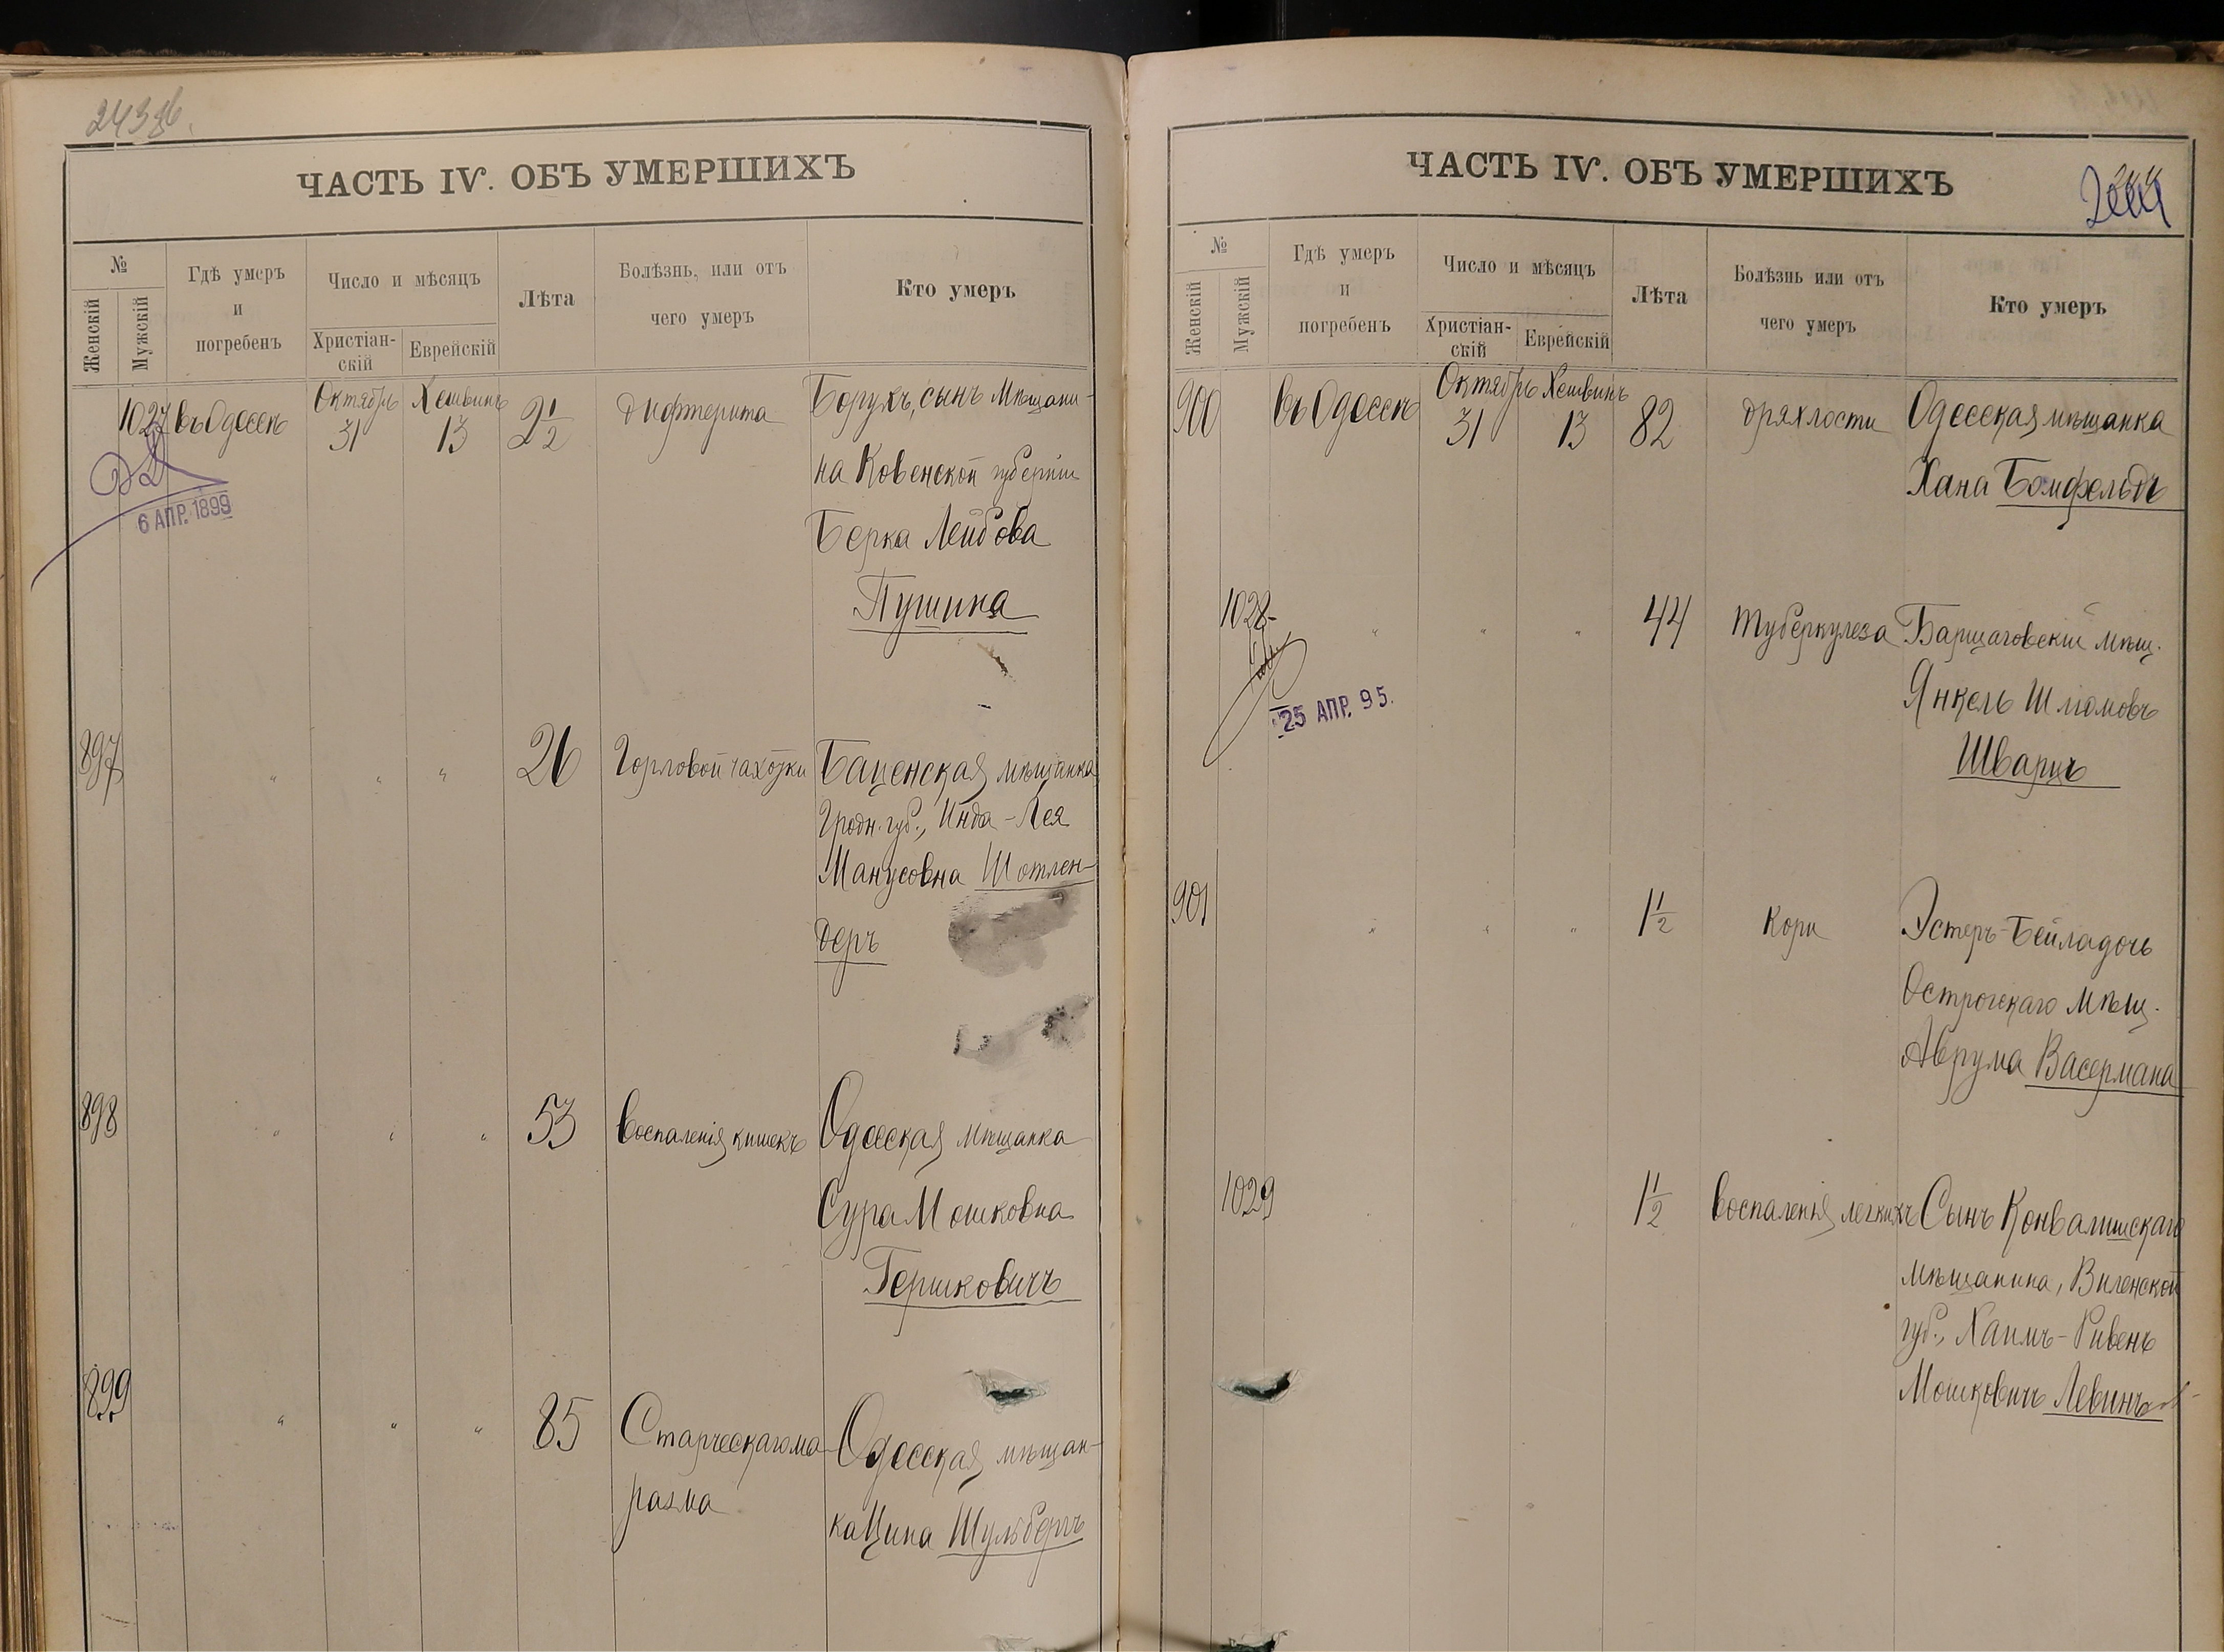 243 об.
ЧАСТЬ IV. ОБЪ УМЕРШИХЪ
№
Женскій
Мужскій
Гдѣ умеръ
и
погребенъ
Число и мѣсяцъ
Христіан-
скій
Еврейскій
Лѣта
Болѣзнь, или отъ
чего умеръ
Кто умеръ
1027 въ Одессѣ Октябрь 31 Хешвинъ 13 2 1/2 дифтерита Борухъ, сынъ Мѣщани-
на Ковенской губерніи
Берка Лейбова
Пушина
6 АПР. 1899
897 " " " 26 Горловой чахотки Баценская мѣщанка
Гродн. губ., Инда-Лея
Манусовна Шотлен-
деръ
898 " " " 53 Воспаленія кишекъ Одесская мѣщанка
Сура Мошковна
Гершковичъ
899 " " " 85 Старческаго ма- Одесская мѣщан-
разма ка Цина Шульбергъ
ЧАСТЬ IV. ОБЪ УМЕРШИХЪ
№
Женскій
Мужскій
Гдѣ умеръ
и
погребенъ
Число и мѣсяцъ
Христіан-
скій
Еврейскій
Лѣта
Болѣзнь или отъ
чего умеръ
Кто умеръ
900 въ Одессѣ Октябрь 31 Хешвинъ 13 82 дряхлости Одесская мѣщанка
Хана Бомфельдъ
1028 " " " 44 туберкулеза Барщаговскій мѣщ.
Янкель Шлiомовъ
Шварцъ
25 АПР. 95.
901 " " " 1 1/2 кори Эстеръ-Бейла дочь
Острогскаго мѣщ.
Аврума Васермана
1029 " 1 1/2 воспаленія легкихъ Сынъ Конвалишскаго
мѣщанина, Виленской
губ., Хаимъ-Рувенъ
Мошковичъ Левинъ